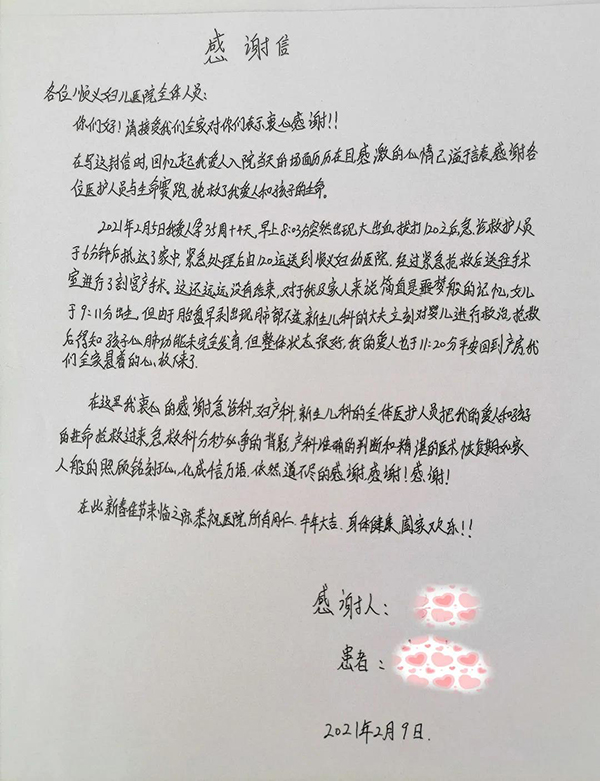 感谢信
各位顺义妇儿医院全体人员:
你们好!请接受我们全家对你们表示衷心感谢!!
在写这封信时,回忆起我爱人入院当天的场面历历在目感激的心情已溢于言表,感谢各
位医护人员与生命赛跑,抢救了我爱人和孩子的生命。
2021年2月5日我爱人孕35周+4天,早上8:03分突然出现大出血拨打120之后,急诊救护人员
于6分钟后抵达了家中,紧急处理后由120运送到顺义妇幼医院。经过紧急抢救后送往手术
室进行了剖宫产手术。这还远远没有结束,对于我及家人来说简直是噩梦般的记忆,女儿
于9:11分出生,但由于胎盘早剥出现肺部不适,新生儿科的大夫立刻对婴儿进行救治,抢救
后得知孩子心肺功能未完全发育,但整体状态很好,我的爱人也于11:20分平安回到产房,我
们全家悬着的心,放下来了.
在这里我衷心的感谢急诊科,妇产科,新生儿科的全体医护人员把我的爱人和孩子
的生命抢救过来,急救科分秒必争的背影,产科准确的判断和精湛的医术,恢复期如家
人般的照顾铭刻于心,化成信万语,依然道不尽的感谢,感谢!感谢!
在此新春佳节来临之际恭祝医院所有同仁.牛年大吉.身体健康,阖家欢乐!!
感谢人:
患者:
2021年2月9日.